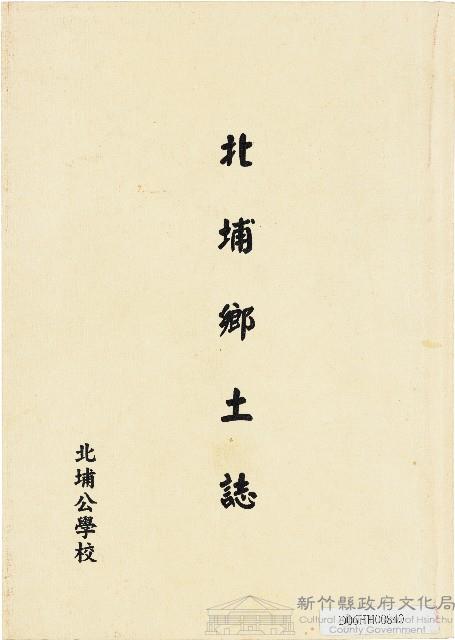 北埔鄉土誌
北埔公學校
新竹縣政府文化局
Cultural Affairs Bureau of Hsinchu
County Government